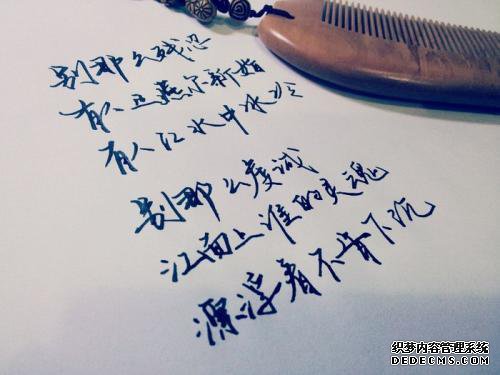 别那么残忍
有人正燕尔新婚
有人江水中冰冷
别那么虔诚
江面上谁的灵魂
漂浮着不肯下沉
织梦内容管理系统
DEDECMS.COM